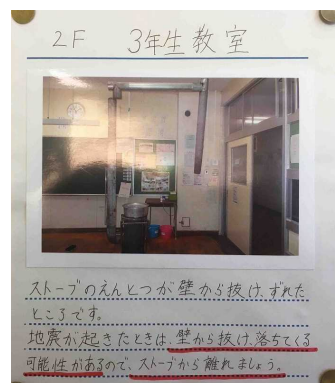 2F 3年生教室
ストーブのえんとつが壁から抜け、ずれた
ところです。
地震が起きたときは、壁から抜け、落ちてくる
可能性があるので、ストーブから離れましょう。